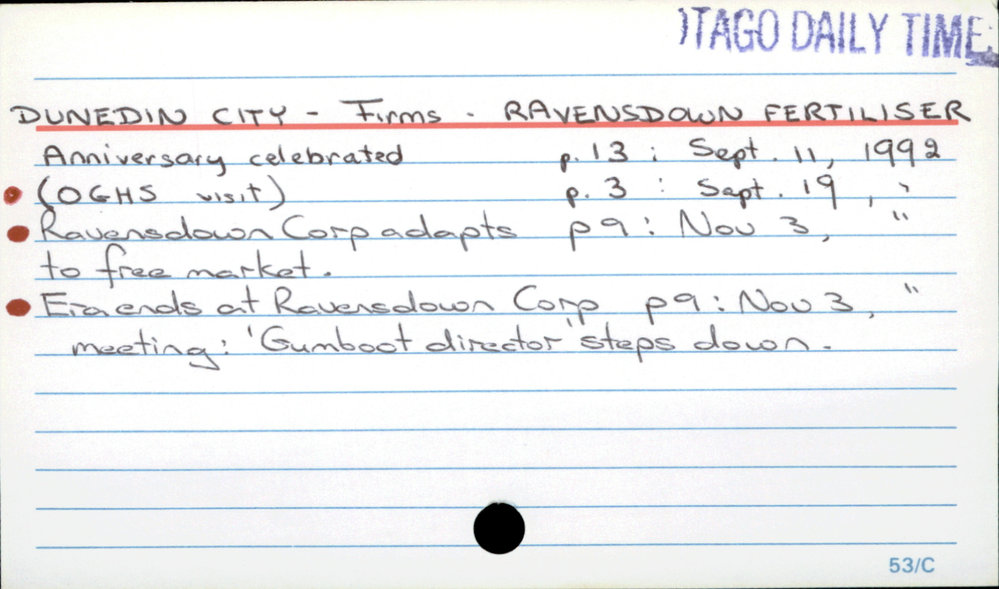 OTAGO DAILY TIMES
DUNEDIN CITY - Firms - RAVENSDOWN FERTILISER
Anniversary celebrated p. 13 : Sept. 11, 1992
(OGHS visit) p. 3 : Sept. 19, "
Ravensdown Corp adapts p9 : Nov 3, "
to free market.
Era ends at Ravensdown Corp p9 : Nov 3, "
meeting : 'Gumboot director' steps down.
53/C